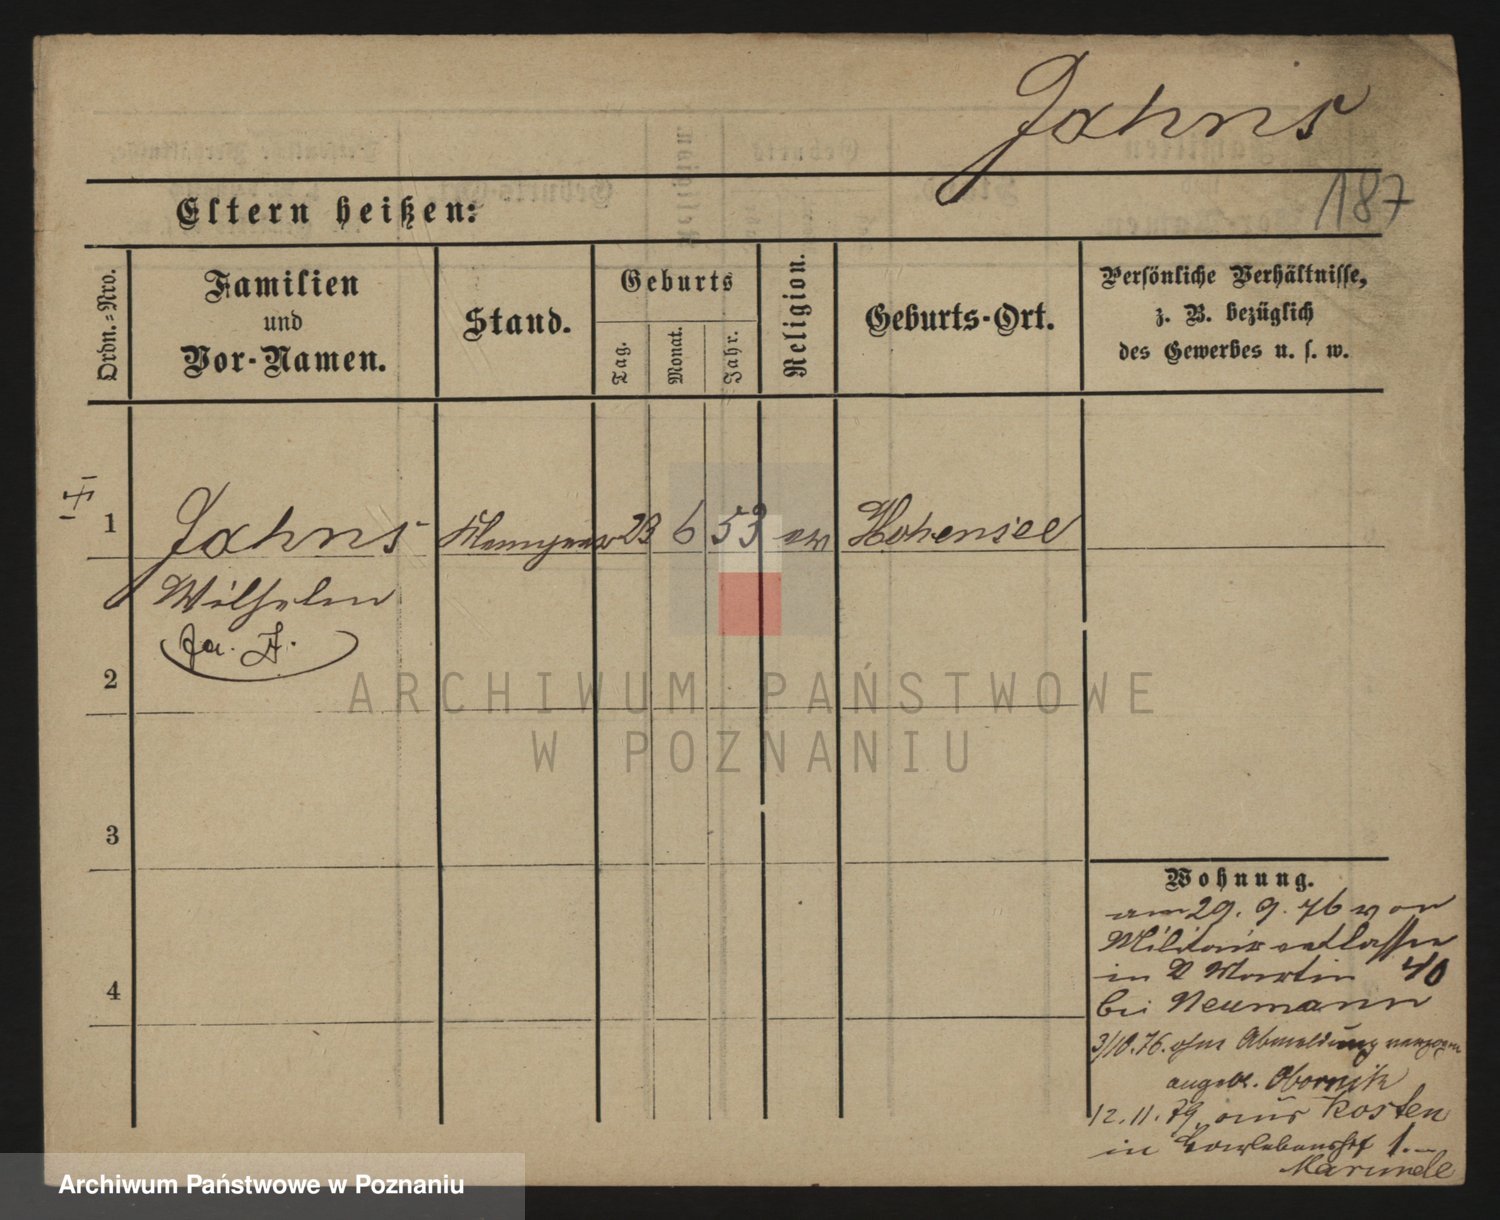 Jahns
187
Eltern heißen:
Ordn.-Nro.
Familien
und
Vor-Namen.
Stand.
Geburts
Tag.
Monat.
Jahr.
Religion.
Geburts-Ort.
Persönliche Verhältnisse,
z. B. bezüglich
des Gewerbes u. s. w.
1
Jahns
Klempner
23
6
53
ev
Hohensee
Wilhelm
2
ARCHIWUM PAŃSTWOWE
W POZNANIU
3
4
Wohnung.
am 29. 9. 76 vom
Militair entlassen
in St Martin 40
bei Neumann
3/10.76. ohne Abmeldung verzogen
angebl. Obornik
12.11.79. aus Kosten
in 1.
Marunde
Archiwum Państwowe w Poznaniu